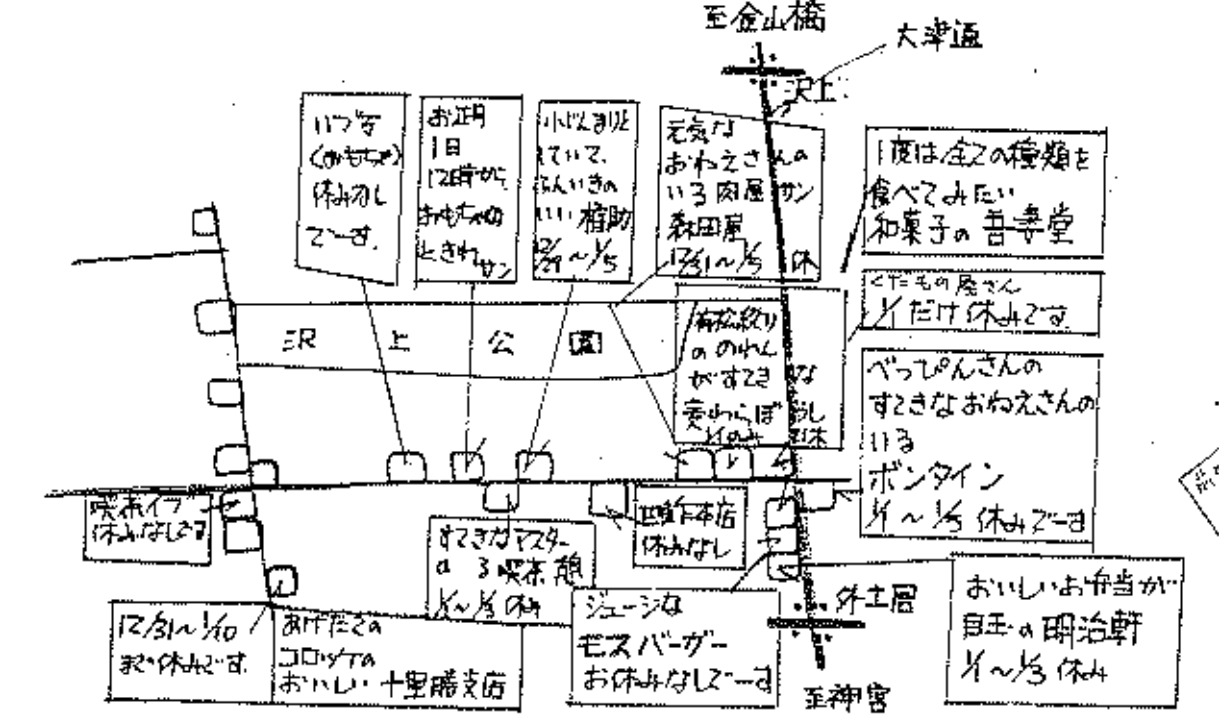 至金山橋
大津通
沢上
いづや
(おもちゃ)
休みなし
でーす.
お正月
1日
12時から
おもちゃの
ときわサン
小じんまりと
していて、
ふんいきの
いい 権助
12/29～1/5
元気な
おねえさんの
いる肉屋サン
森田屋
12/31～1/5 休
1度は全ての種類を
食べてみたい
和菓子の 吾妻堂
くだもの屋さん
1/1だけ休みです
沢上公園
有松絞り
ののれん
がすてきな
べっぴんさんの
すてきなおねえさんの
いる
ボンタイン
1/1～1/3 休みでーす
休みなしです
すてきなマスター
喫茶 憩
1/1～1/3 休み
本店
休みなし
12/31～1/10
まで休みです.
あげたての
コロッケの
おいしい 十里勝支店
ジューシな
モスバーガー
お休みなしでーす
外土居
至神宮
おいしいお弁当が
目玉の明治軒
1/1～1/3 休み